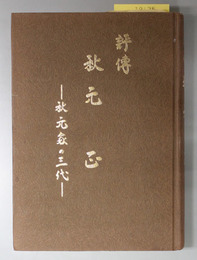 評傳
秋元 正
―秋元家の三代―